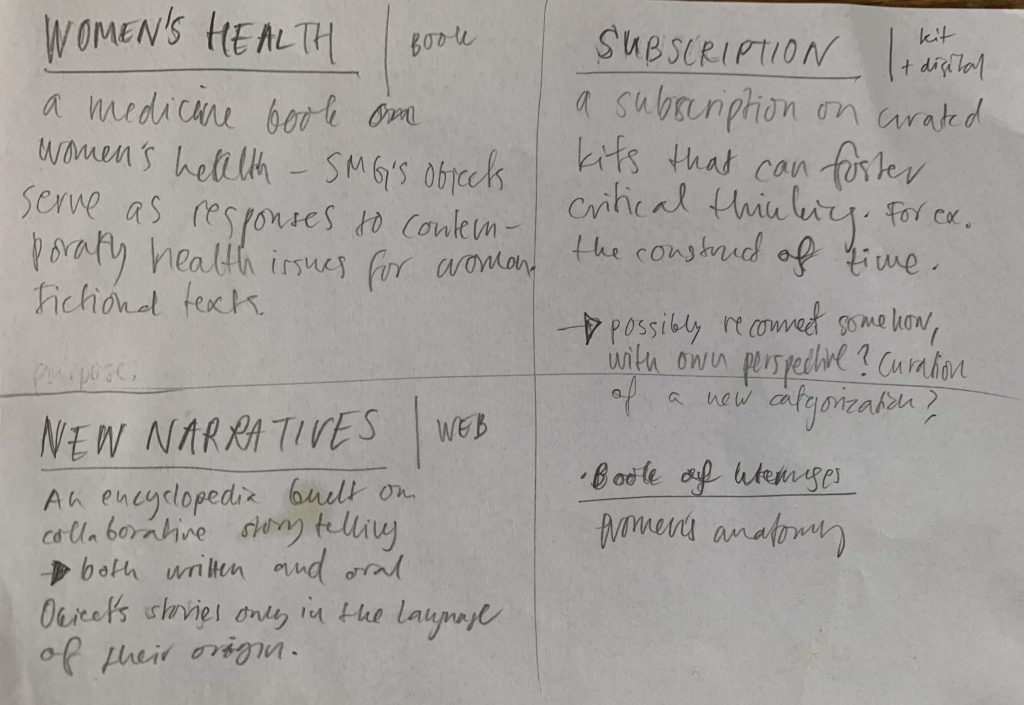 WOMEN'S HEALTH | BOOK
a medicine book on
women's health – SMG's objects
serve as responses to contem-
porary health issues for women.
Fictional texts.
purpose.
SUBSCRIPTION | kit
+ digital
a subscription on curated
kits that can foster
critical thinking. For ex.
the construct of time.
→ possibly reconnect somehow,
with own perspective? Curation
of a new catgorization?
NEW NARRATIVES | WEB
An encyclopedia built on
collaborative story telling
→ both written and oral
Object's stories only in the language
of their origin.
• Book of
Women's anatomy